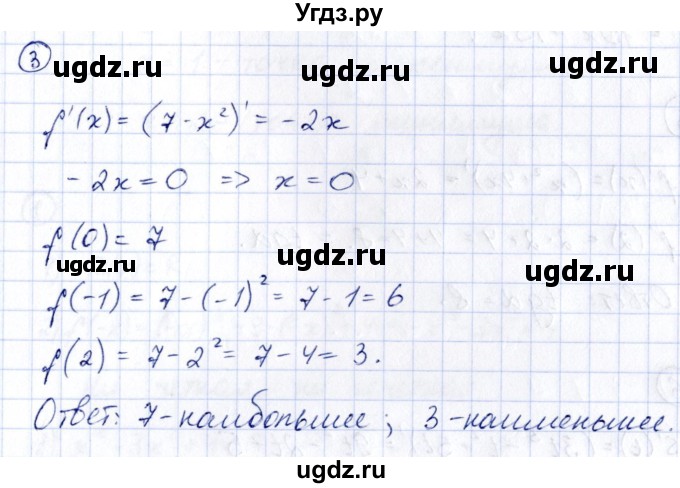 Угдз.ру
3
ugdz.ru ugdz.ru
f'(x) = (7 - x²)' = -2x
ugdz.ru
-2x = 0 => x = 0
f(0) = 7
ugdz.ru
ugdz.ru ugdz.ru
f(-1) = 7 - (-1)² = 7 - 1 = 6
ugdz.ru
f(2) = 7 - 2² = 7 - 4 = 3.
Ответ: 7 - наибольшее; 3 - наименьшее.
ugdz.ru